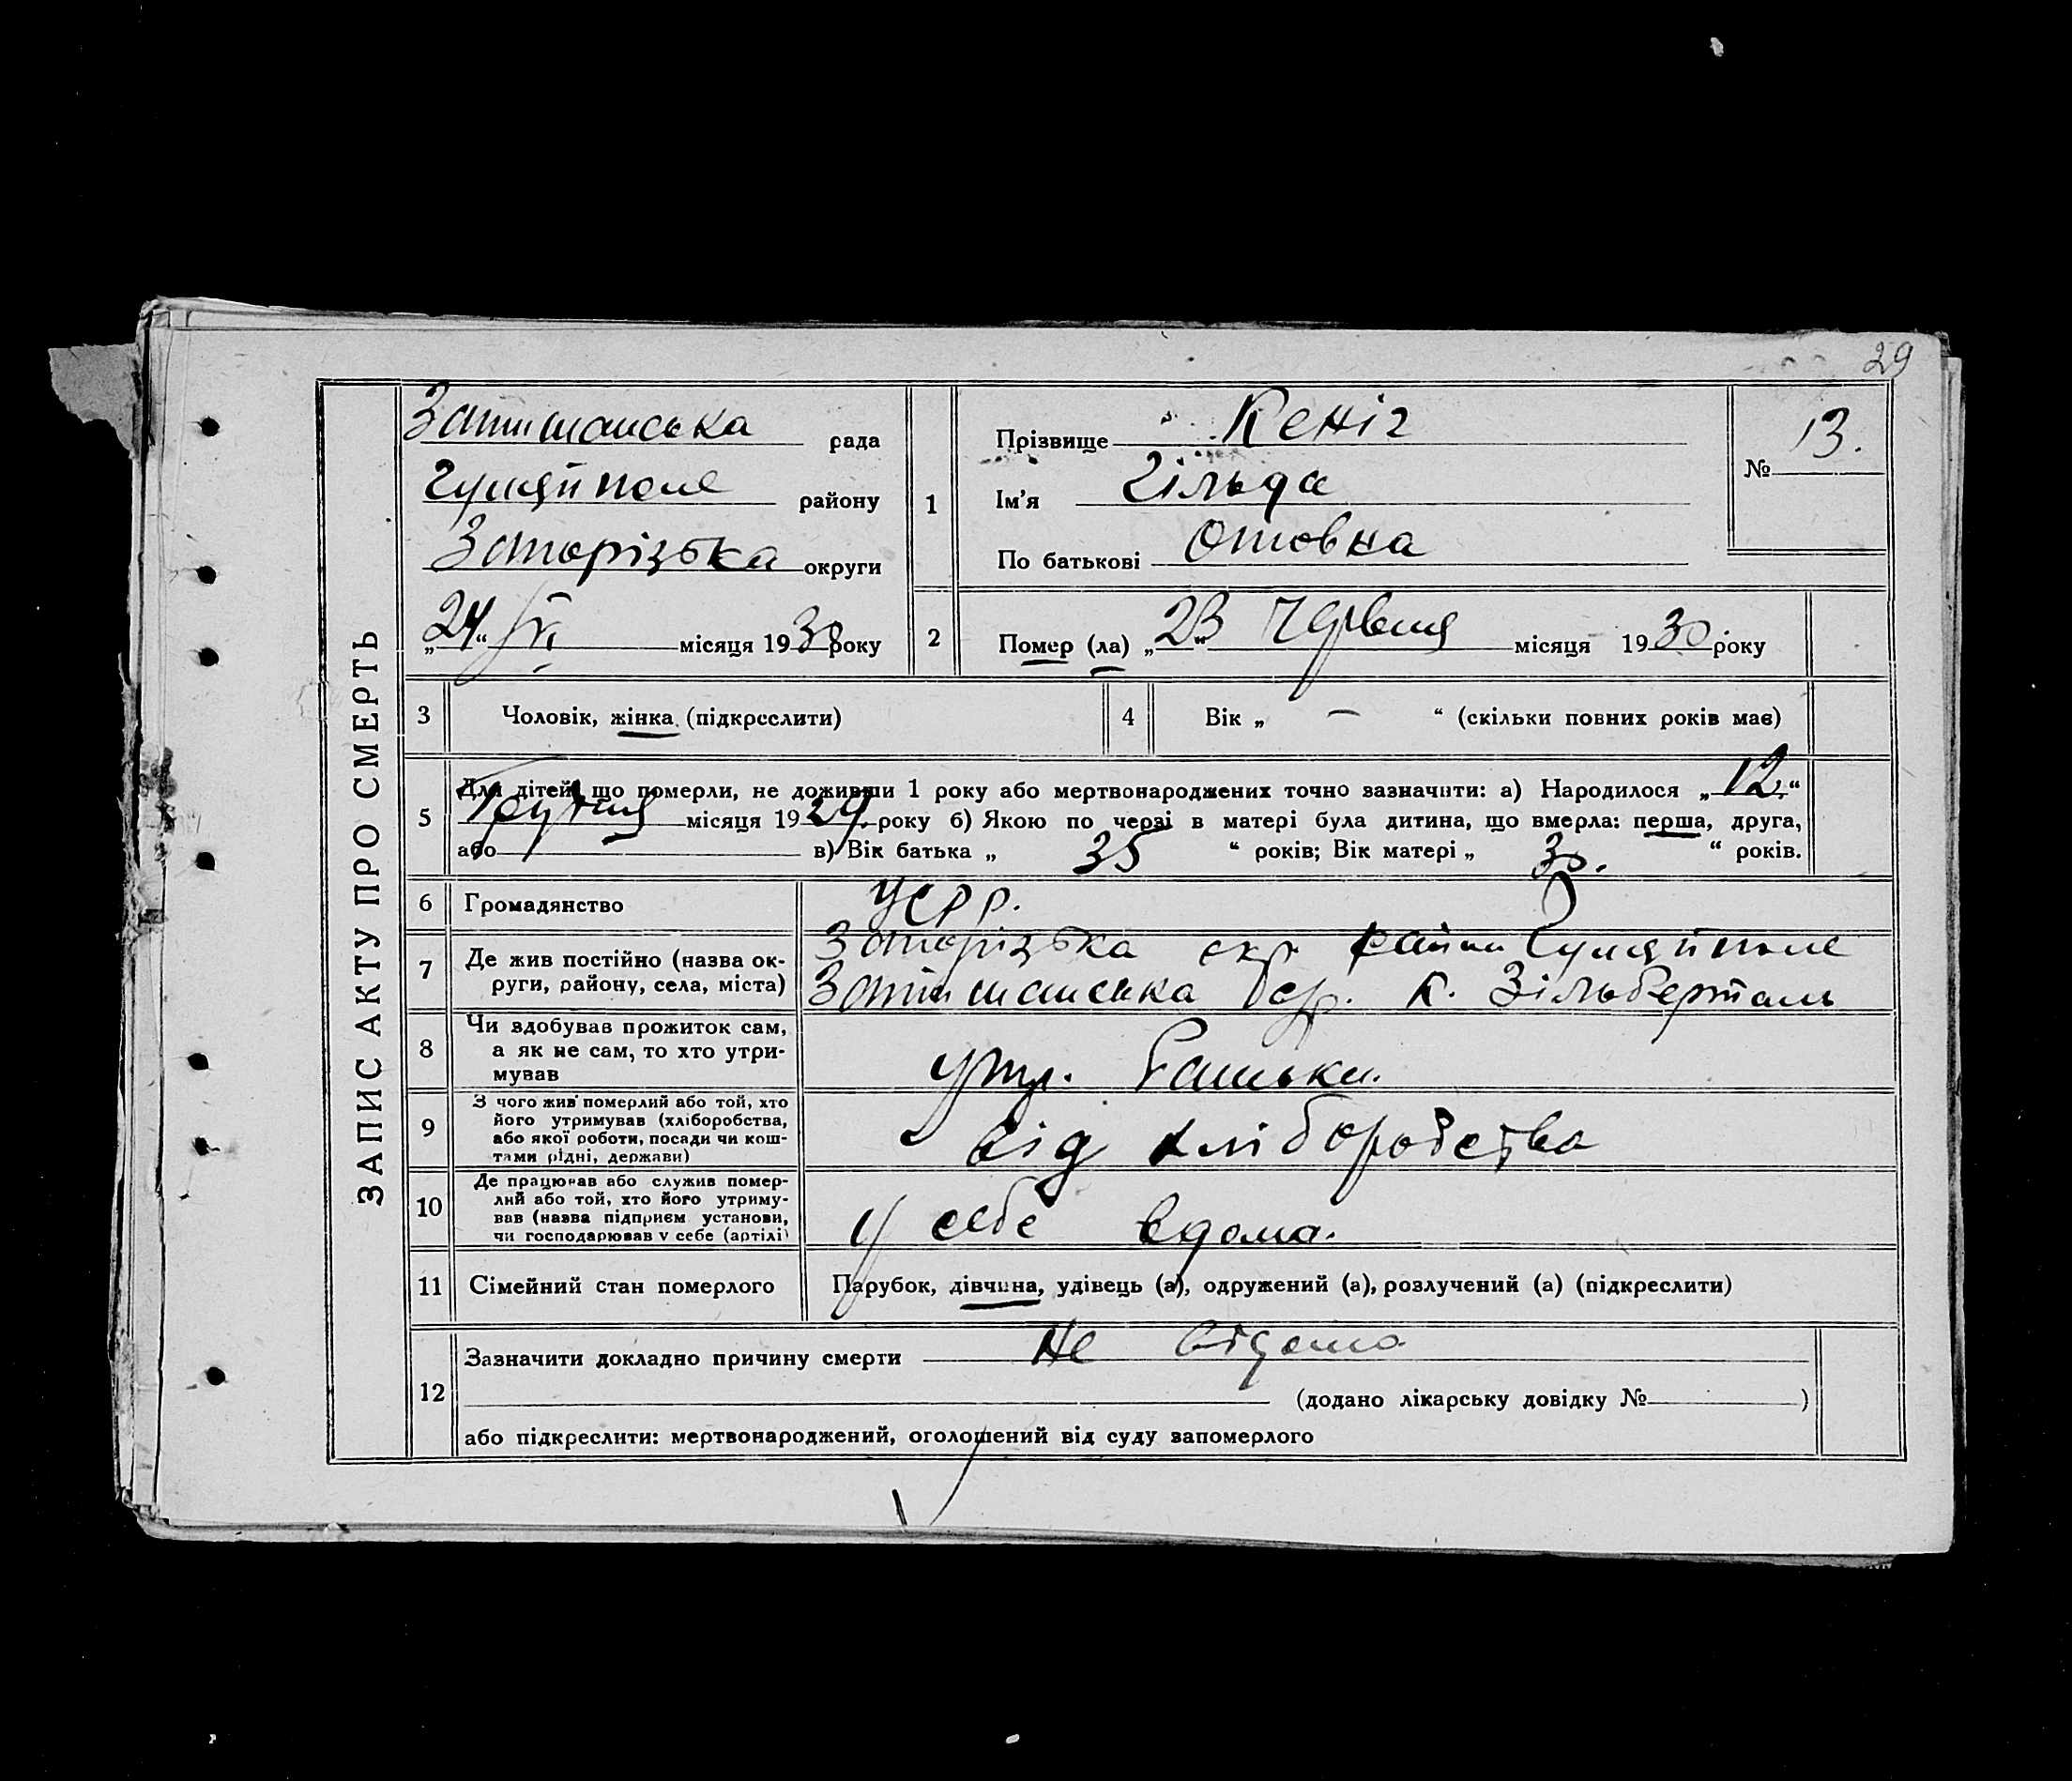 29
ЗАПИС АКТУ ПРО СМЕРТЬ
Затишанська рада
Гуляйполе району
Запорізька округи
„24“ VI місяця 1930 року
№ 13.
1
Прізвище Кеніг
Ім'я Гільда
По батькові Отовна
2 Помер (ла) „23“ Червня місяця 1930 року
3 Чоловік, жінка (підкреслити)
4 Вік „ — “ (скільки повних років має)
5 Для дітей, що померли, не доживши 1 року або мертвонароджених точно зазначити: а) Народилося „12.“
Грудня місяця 1929. року б) Якою по черзі в матері була дитина, що вмерла: перша, друга,
або в) Вік батька „ 35 “ років; Вік матері „ 30. “ років.
6 Громадянство УСРР.
7 Де жив постійно (назва ок-
руги, району, села, міста)
Запорізька окр. району Гуляйполе
Затишанська с/р. к. Зільберталь
8 Чи здобував прожиток сам,
а як не сам, то хто утри-
мував
утр. батьки.
9 З чого жив померлий або той, хто
його утримував (хліборобства,
або якої роботи, посади чи кош-
тами рідні, держави)
від хліборобства
10 Де працював або служив помер-
лий або той, хто його утриму-
вав (назва підприєм установи,
чи господарював у себе (артілі)
У себе вдома.
11 Сімейний стан померлого Парубок, дівчина, удівець (а), одружений (а), розлучений (а) (підкреслити)
12 Зазначити докладно причину смерти Не відомо
(додано лікарську довідку № )
або підкреслити: мертвонароджений, оголошений від суду запомерлого